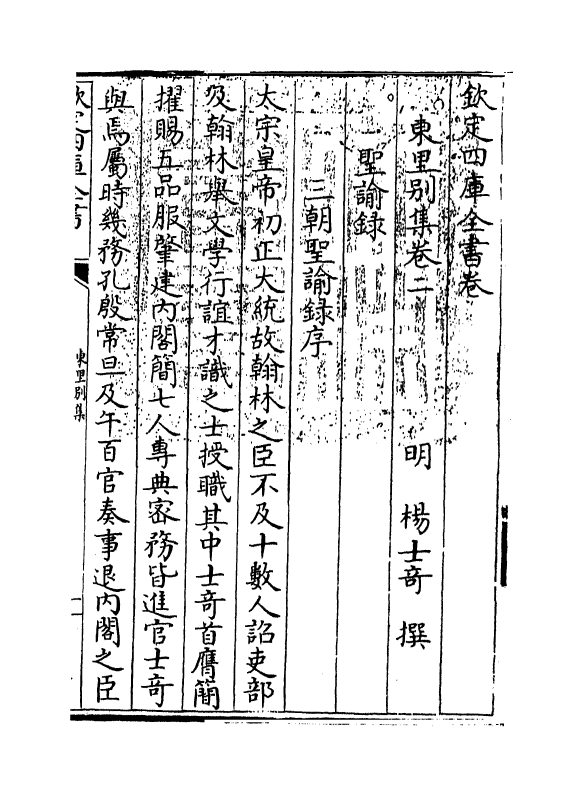 欽定四庫全書卷
東里别集卷二
明 楊士竒 撰
聖諭録
三朝聖諭録序
太宗皇帝初正大統故翰林之臣不及十數人詔吏部
及翰林舉文學行誼才識之士授職其中士竒首膺簡
擢賜五品服肇建内閣簡七人專典宻務皆進官士竒
與焉屬時幾務孔殷常旦及午百官奏事退内閣之臣
欽定四庫全書
東里别集
一